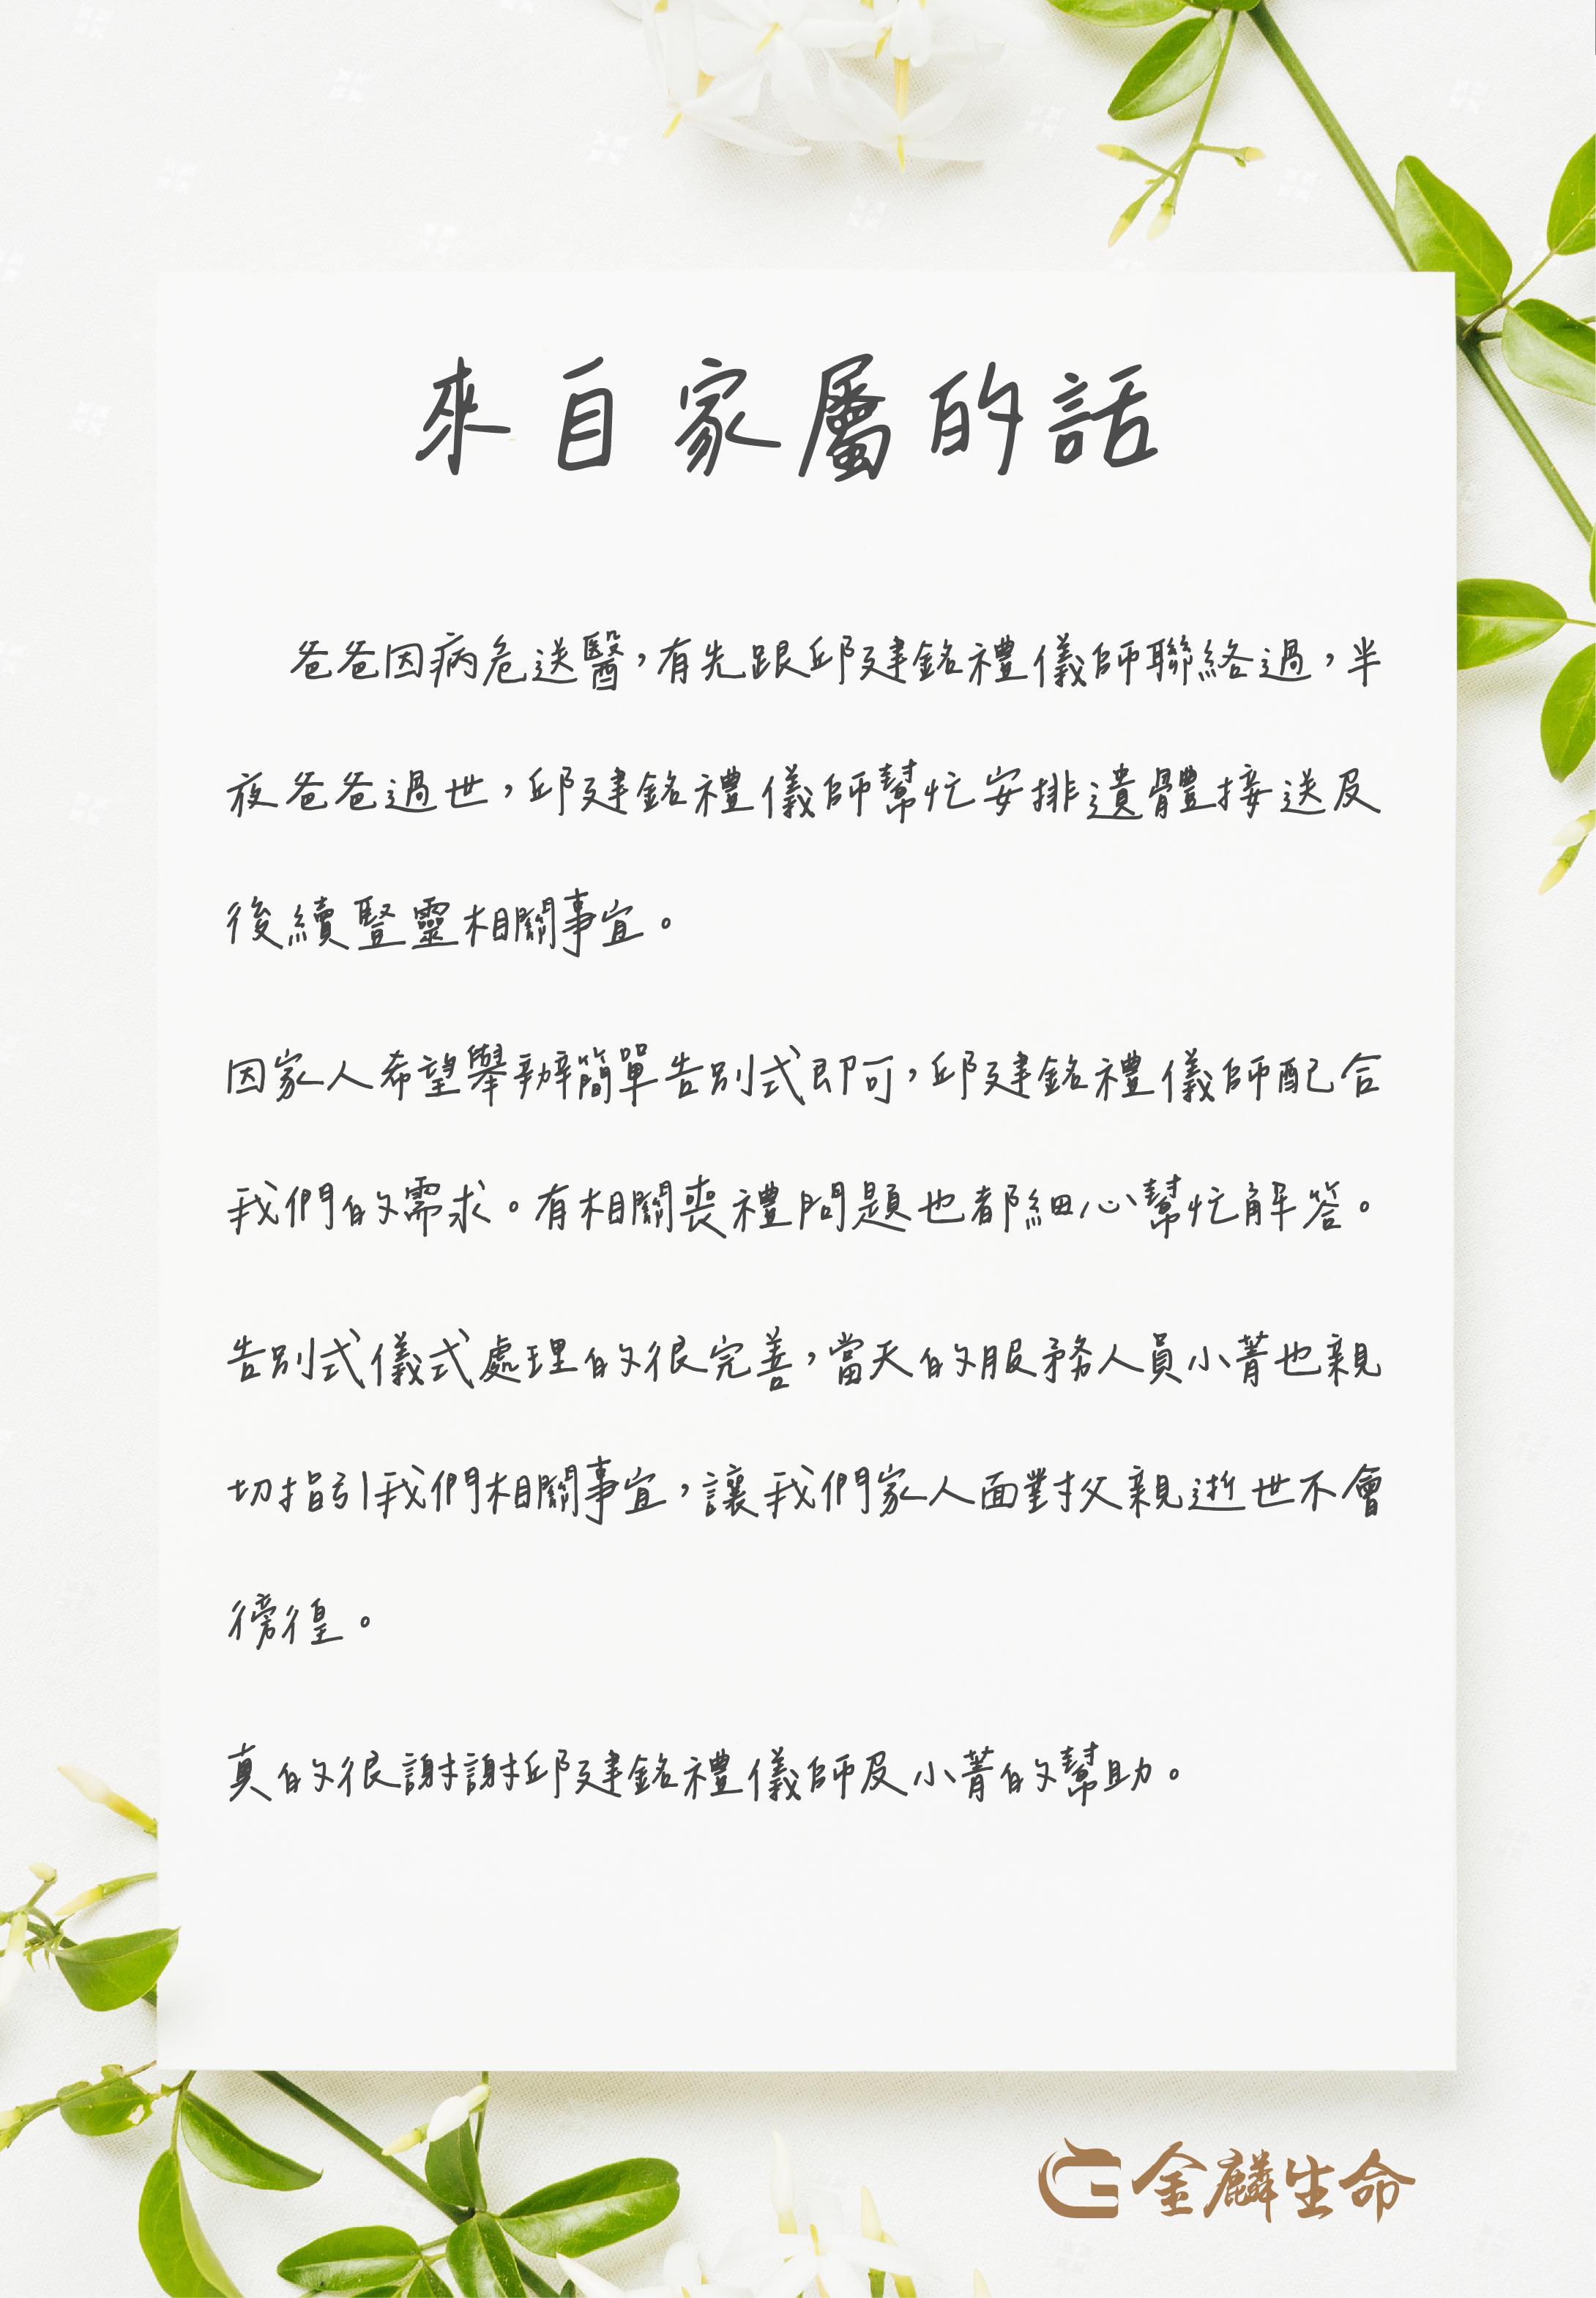 來自家屬的話
爸爸因病危送醫，有先跟邱建銘禮儀師聯絡過，半
夜爸爸過世，邱建銘禮儀師幫忙安排遺體接送及
後續豎靈相關事宜。
因家人希望舉辦簡單告別式即可，邱建銘禮儀師配合
我們的需求。有相關喪禮問題也都細心幫忙解答。
告別式儀式處理的很完善，當天的服務人員小菁也親
切指引我們相關事宜，讓我們家人面對父親逝世不會
徬徨。
真的很謝謝邱建銘禮儀師及小菁的幫助。
金麟生命